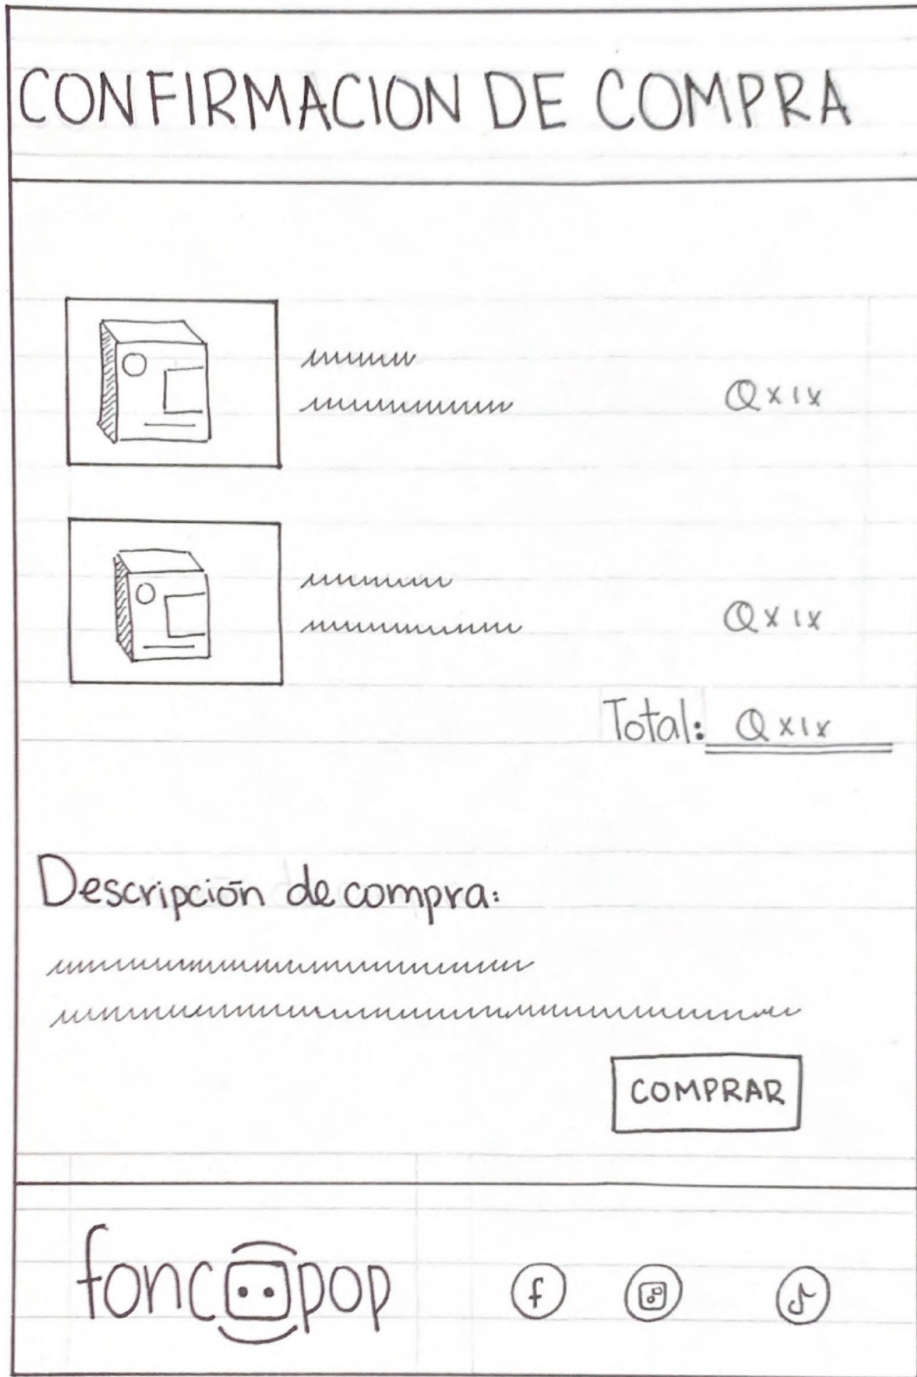 CONFIRMACION DE COMPRA
Qxix
Qxix
Total: Qxix
Descripción de compra:
COMPRAR
foncopop
f